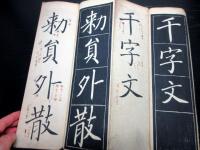 千字文
千字文
勅員外散
勅員外散